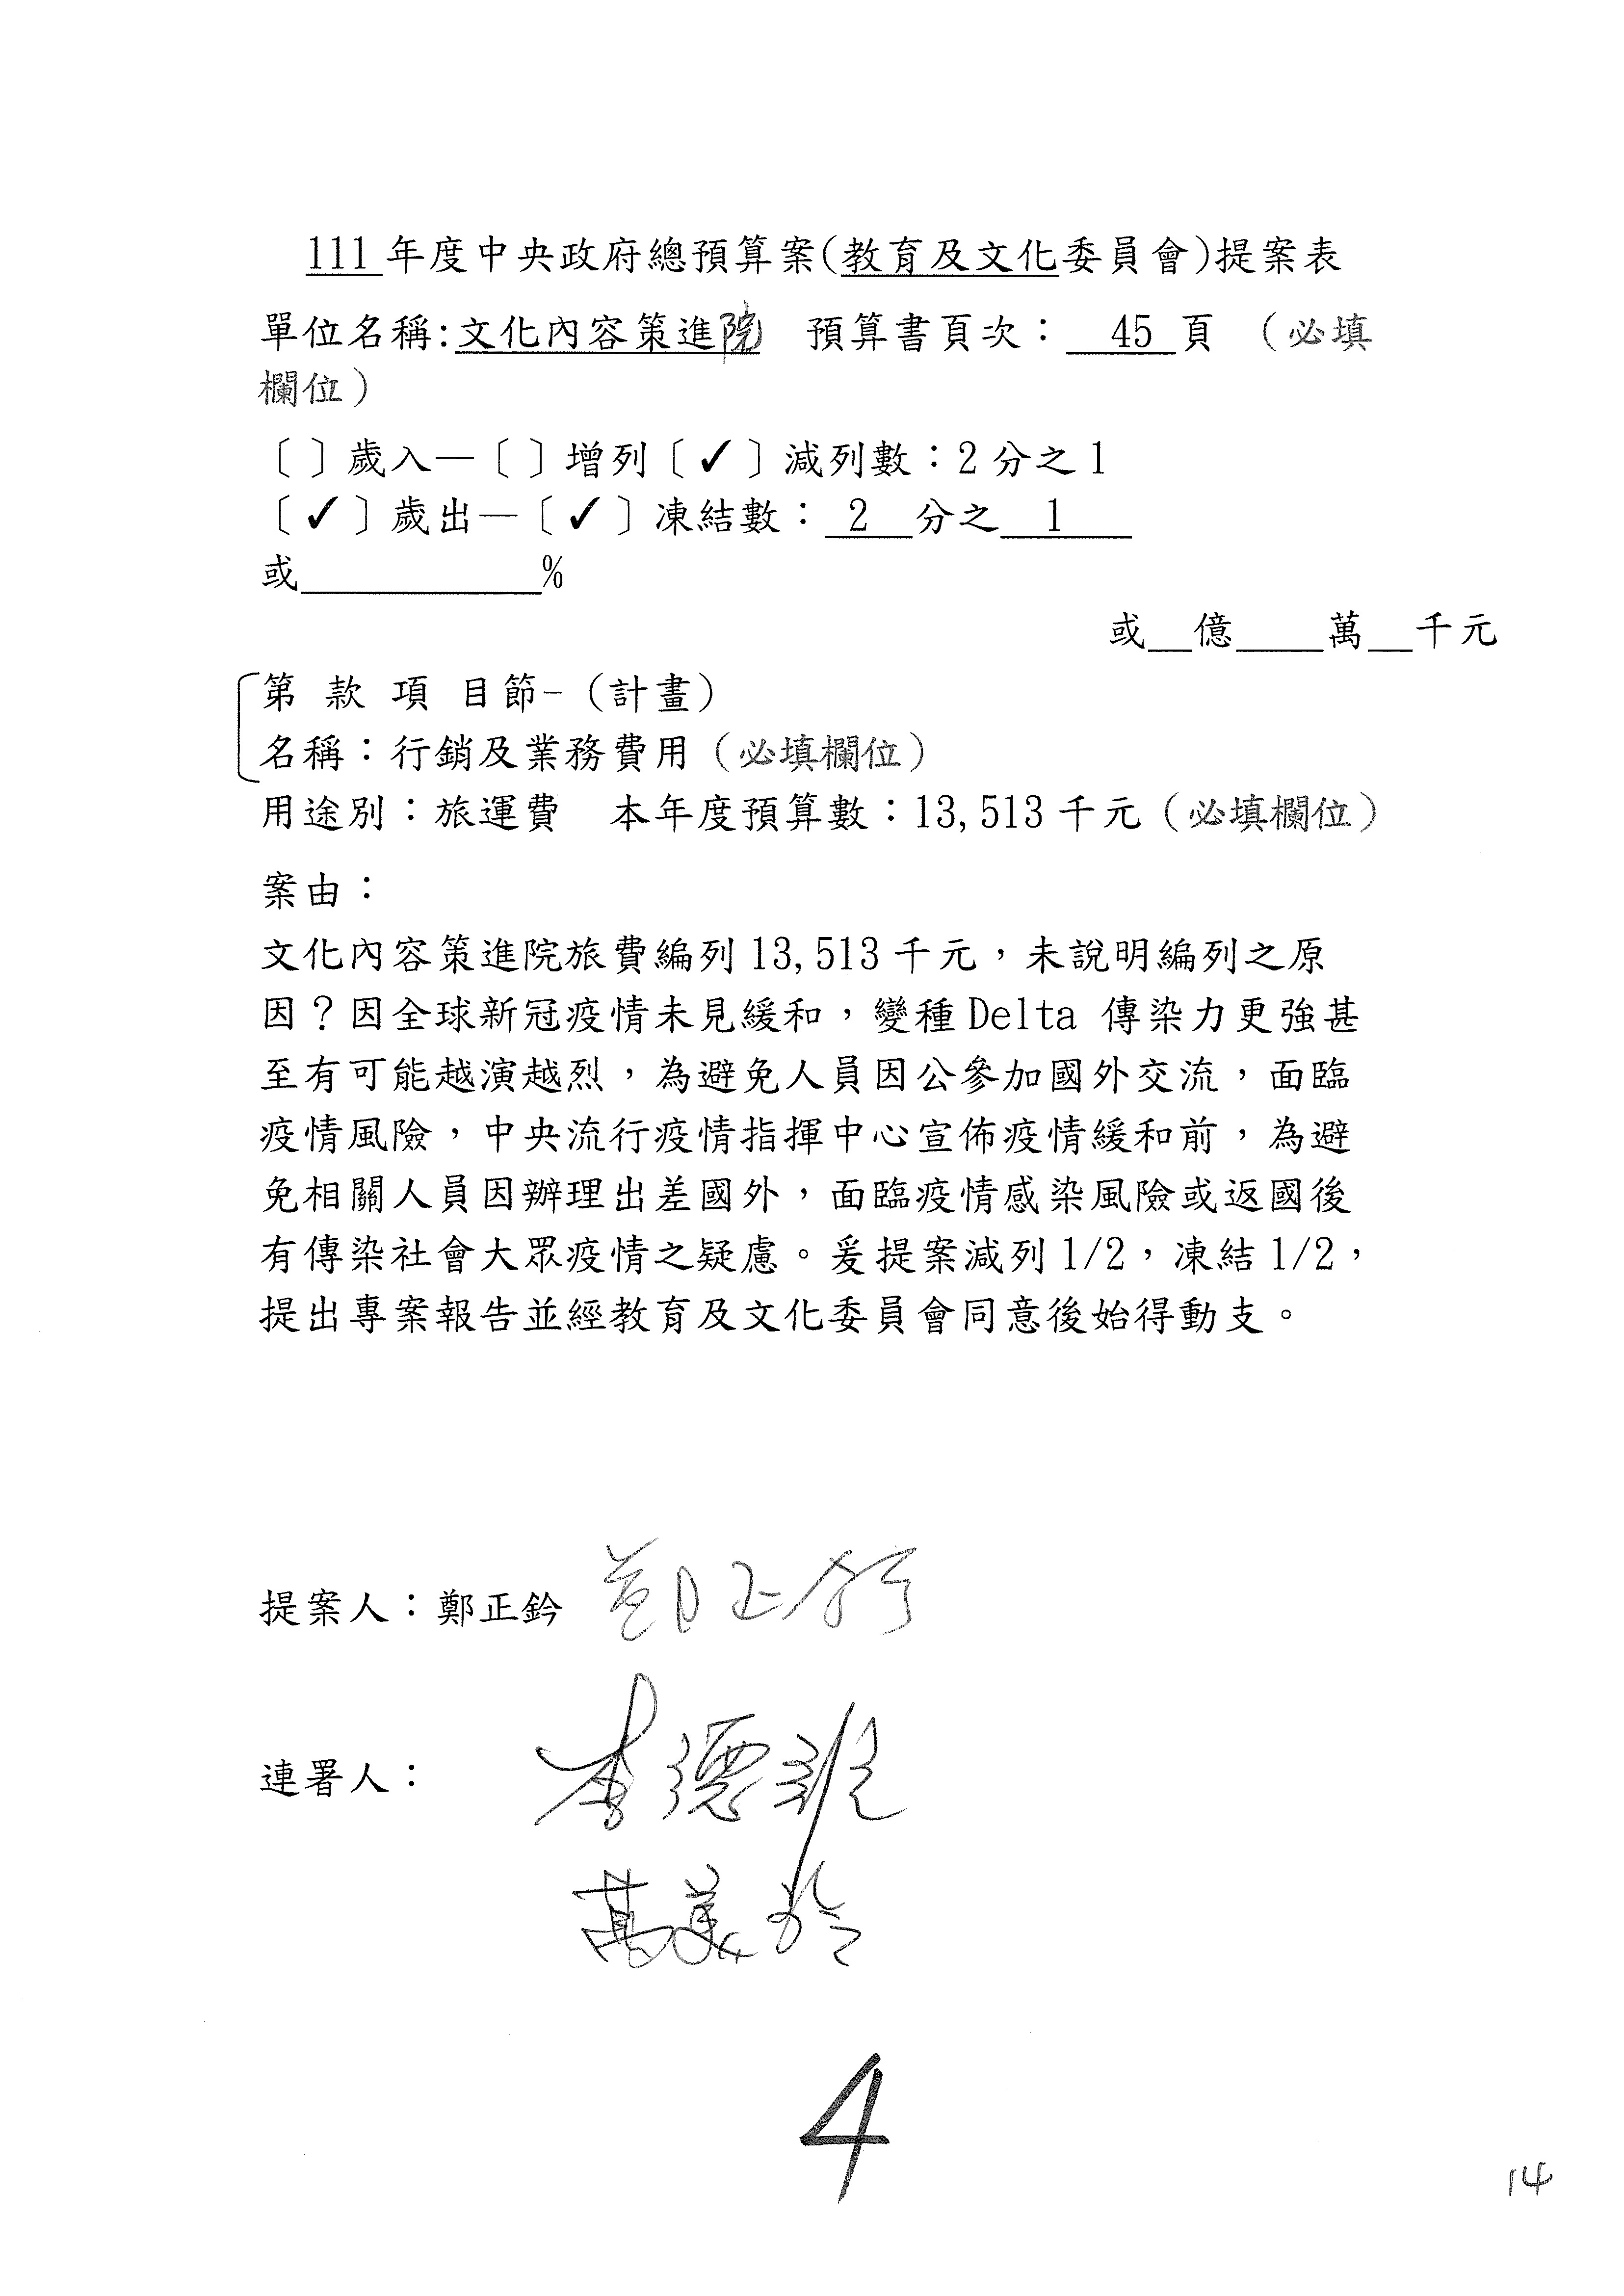 111 年度中央政府總預算案(教育及文化委員會)提案表
單位名稱:文化內容策進院　預算書頁次： 45 頁 （必填
欄位）
〔 〕歲入—〔 〕增列〔✓〕減列數：2 分之 1
〔✓〕歲出—〔✓〕凍結數： 2 分之 1
或___________%
或__億____萬__千元
第 款 項 目節-（計畫）
名稱：行銷及業務費用（必填欄位）
用途別：旅運費　本年度預算數：13,513 千元（必填欄位）
案由：
文化內容策進院旅費編列 13,513 千元，未說明編列之原
因？因全球新冠疫情未見緩和，變種 Delta 傳染力更強甚
至有可能越演越烈，為避免人員因公參加國外交流，面臨
疫情風險，中央流行疫情指揮中心宣佈疫情緩和前，為避
免相關人員因辦理出差國外，面臨疫情感染風險或返國後
有傳染社會大眾疫情之疑慮。爰提案減列 1/2，凍結 1/2，
提出專案報告並經教育及文化委員會同意後始得動支。
提案人：鄭正鈐 鄭正鈐
連署人： 李德維
萬美玲
4
14